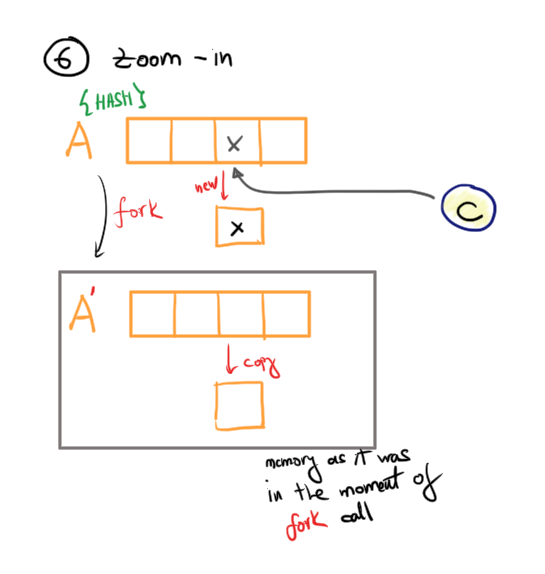 6 Zoom - in
{HASH}
A
x
new
x
fork
C
A'
copy
memory as it was
in the moment of
fork call